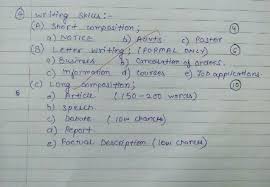 ④ Writing Skills :-
(A) Short composition; ④
a) NOTICE b) Advts. c) Poster
(B) Letter Writing; (FORMAL ONLY) ⑥
a) Business b) Cancellation of orders.
c) Information d) courses e) Job applications
(C) Long composition; ⑩
a) Article (150-200 words)
b) Speech.
c) Debate (low chances)
d) Report
e) Factual Description (low chances)